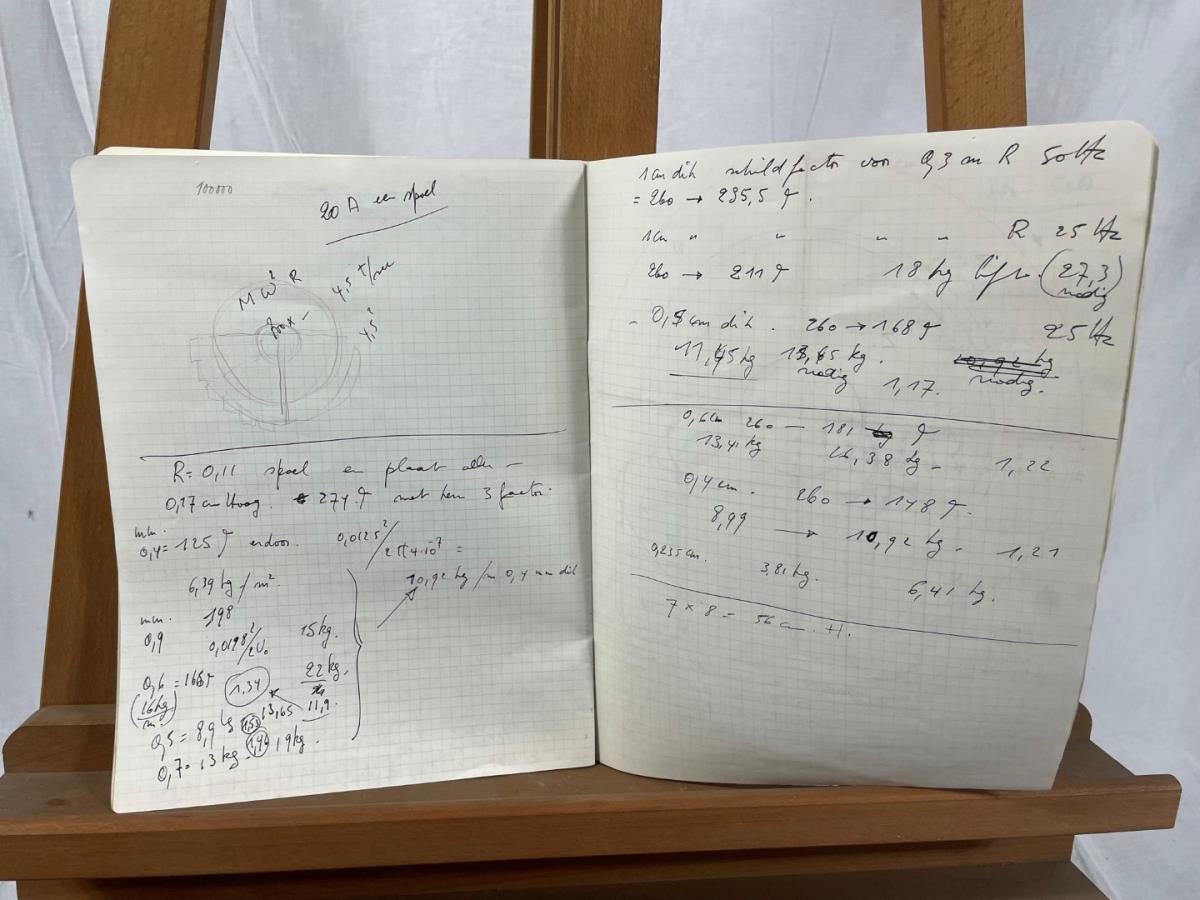 100000
20 A een spoel
M ω² R
4,5 t/sec
4,5²
R = 0,11 spoel en plaat allen –
0,27 cm Hoog. 274 g met hem 3 factor.
mm.
0,4 = 125 g erdoor. 0,0125²/2π4·10⁻⁷ =
6,39 kg/m². 10,92 kg/m 0,4 mm dik
mm. 198
0,9 0,0198²/2U₀ 15 kg.
0,6 = 166 1,34 22 kg.
(16 kg/m²) 11,9
0,5 = 8,9 kg 1,53 13,65
0,7 = 13 kg – 1,46 19 kg.
1 cm dik schildfactor von 0,3 m R 50 Hz
= 260 → 235,5 g.
1 cm " " " " R 25 Hz
260 → 211 g 18 kg lift. (27,3 nodig)
– 0,5 cm dik. 260 → 168 g 25 Hz
11,45 kg 13,65 kg. nodig 1,17. 10,92 kg nodig.
0,6 cm 260 — 181 g
13,41 kg 16,38 kg – 1,22
0,4 cm. 260 → 148 g.
8,99 → 10,92 kg – 1,21
0,235 cm. 3,81 kg. 6,41 kg.
7 × 8 = 56 cm. H.